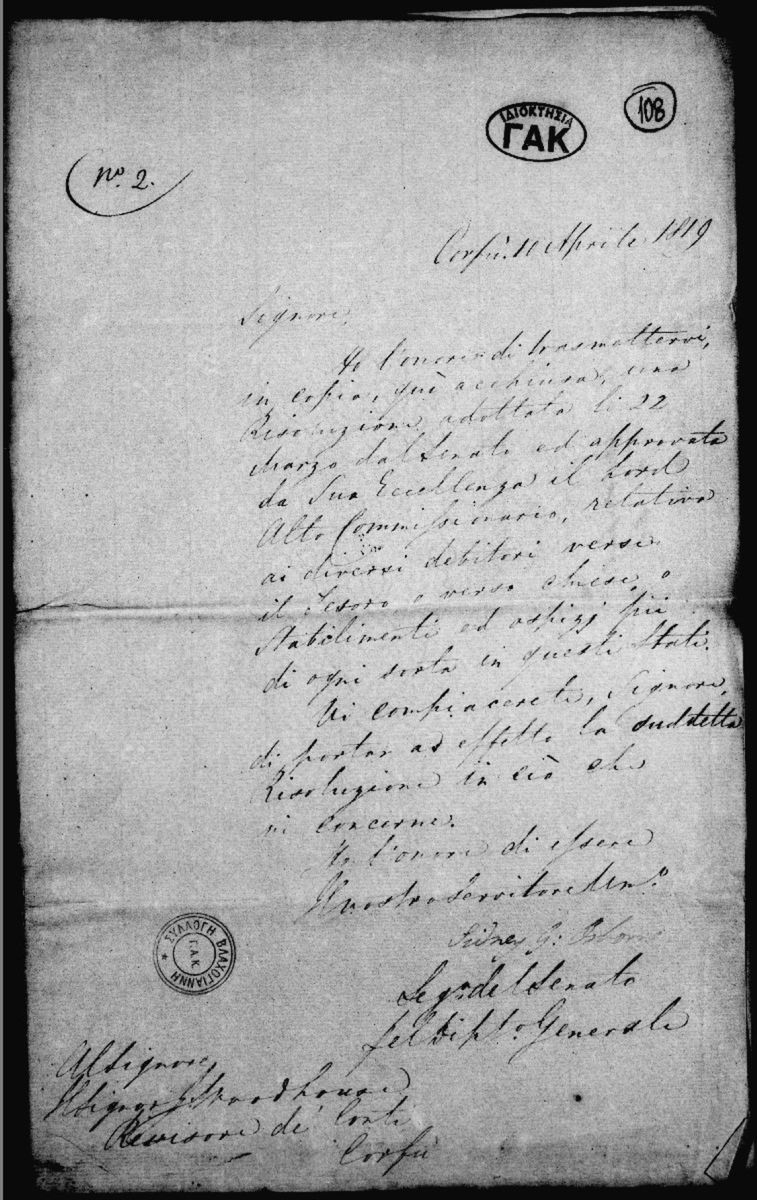 ΙΔΙΟΚΤΗΣΙΑ
ΓΑΚ
108
No. 2.
Corfù. 10 Aprile 1819
Signore,
Ho l'onore di trasmettervi,
in copia, quì acchiusa, una
Risoluzione adottata li 22
Marzo dal Senato ed approvata
da Sua Eccellenza il Lord
Alto Commissionario, relativa
ai diversi debitori verso
il Tesoro, o verso chiese, o
Stabilimenti ed ospizj pii
di ogni sorta in questi Stati.
Vi compiacerete, Signore,
di portar ad effetto la suddetta
Risoluzione in ciò che
vi concerne.
Ho l'onore di essere
Il vostro Servitore Um.o
Sidney G: Osborne
Seg.o del Senato
pel Dip.to Generale
ΣΥΛΛΟΓΗ ΒΛΑΧΟΓΙΑΝΝΗ
Γ.Α.Κ.
Al Signore,
Il Signor J. Woodhouse
Revisore de' Conti
Corfù